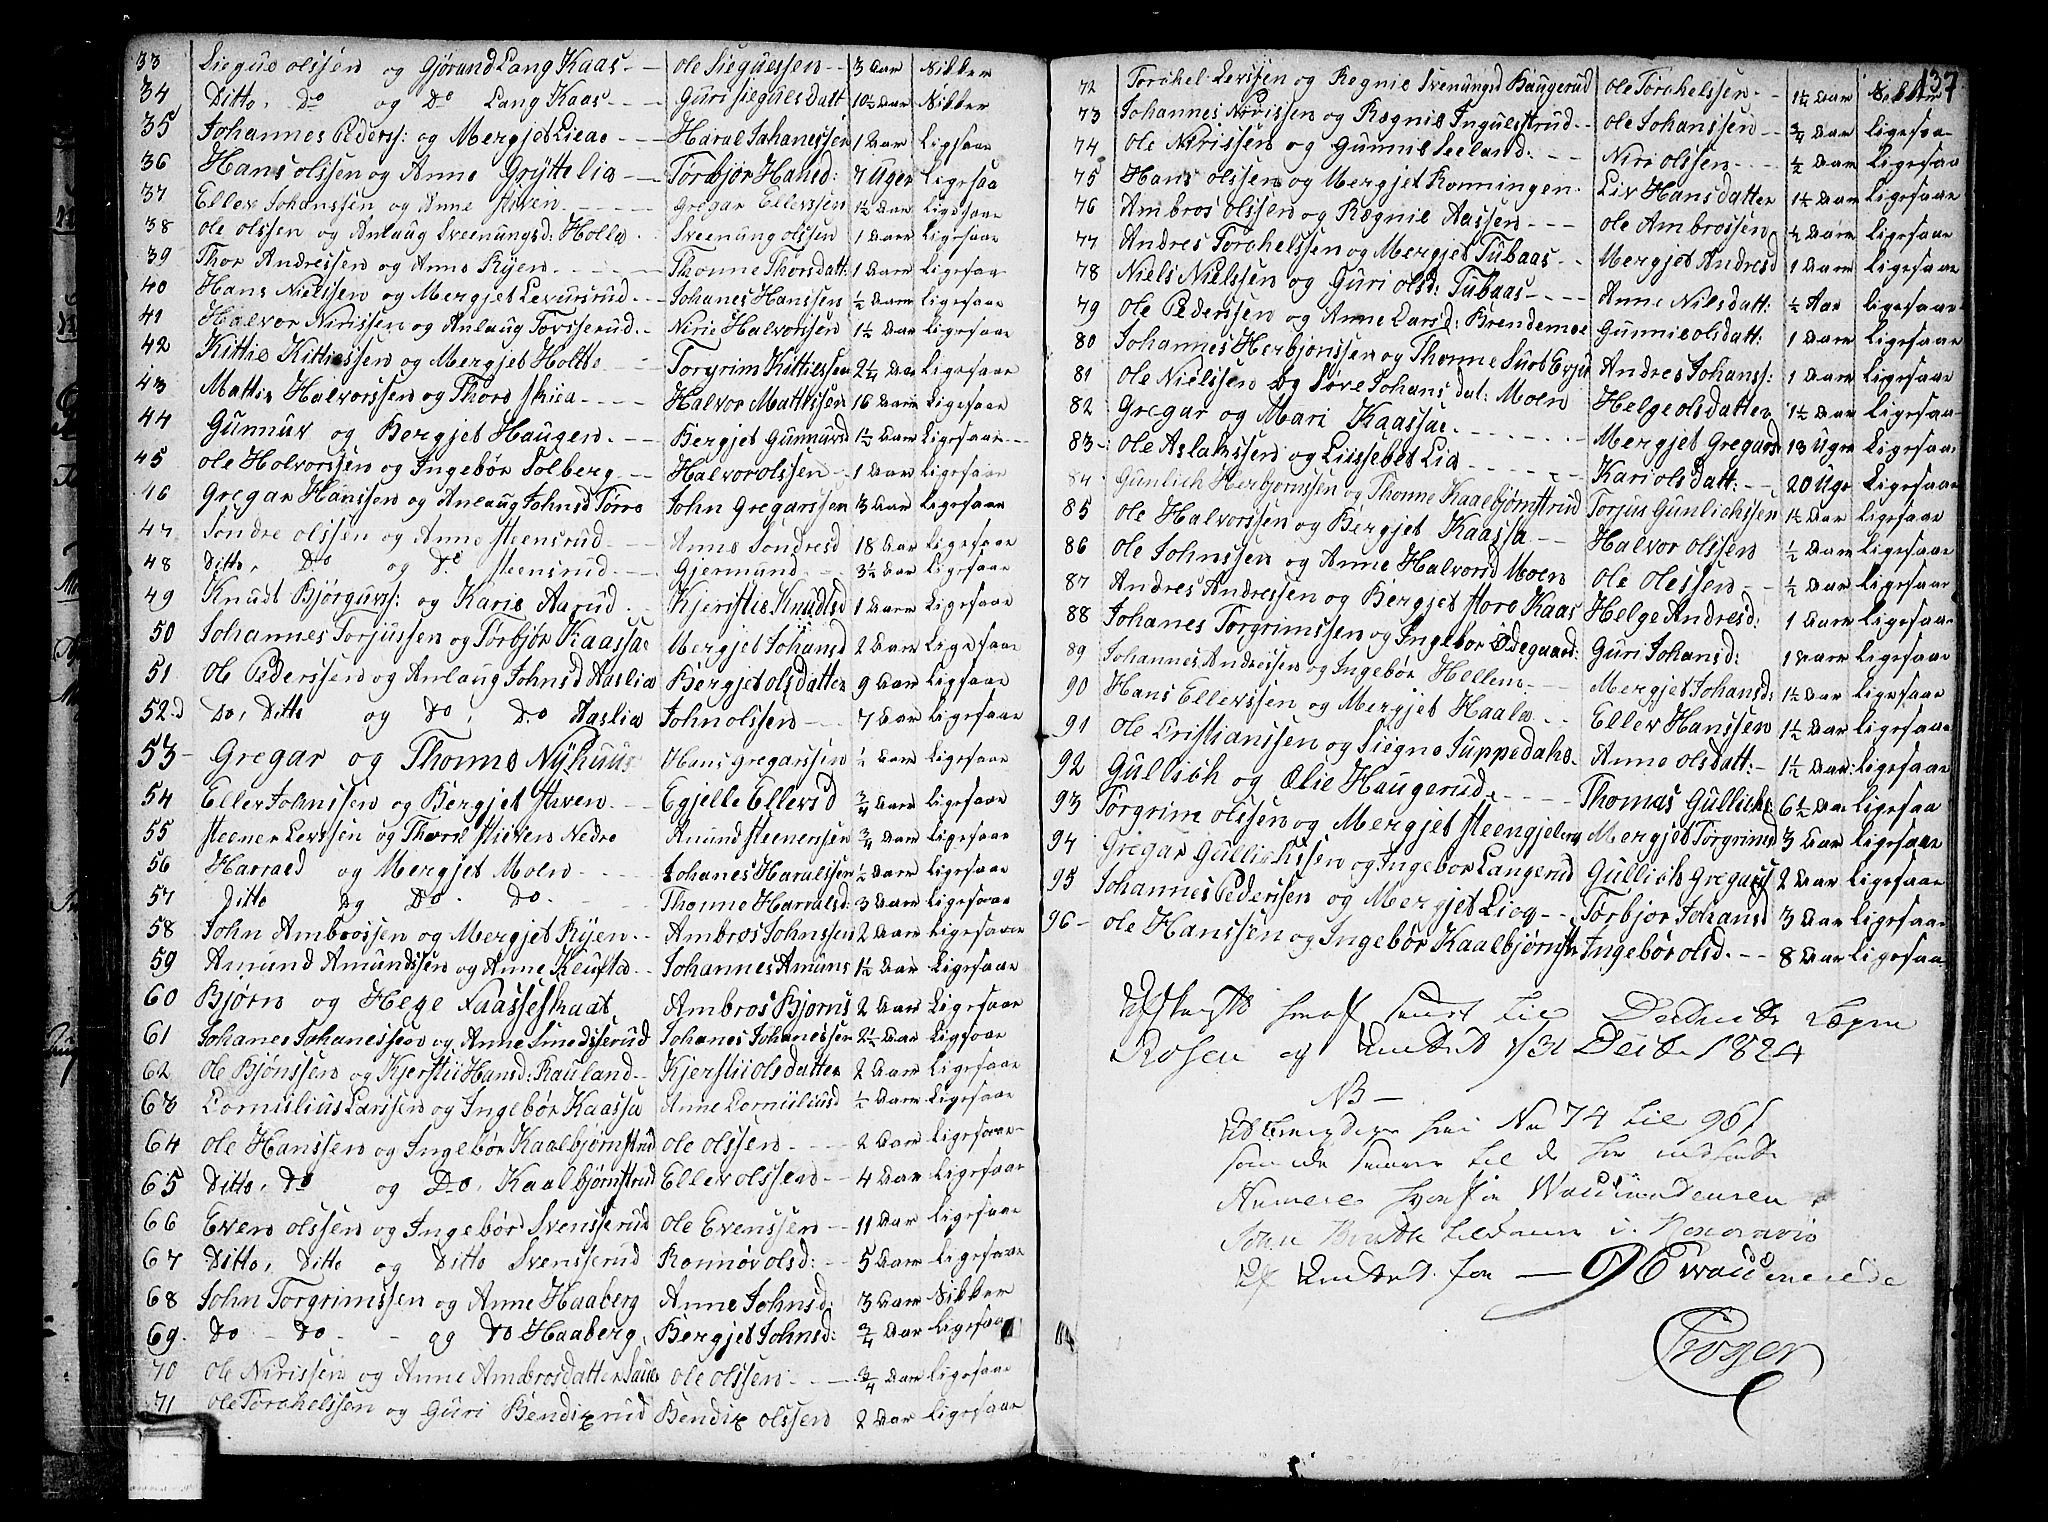 33 Siegus olssen og Gjørund Lang Kaas - ole Sieguessen - 3 Aar Sikker
34 Ditto, Do og Do Lang Kaas - Guri sieguesdatt 10½ Aar Sikker
35 Johannes Peders: og Mergjet Lieae - Haral Johanessen 1 Aar Ligsaa
36 Hans olssen og Anne Grÿttelia - Torbjør Hansd: 7 Uger Ligesaa
37 Eller Johanssen og Anne Stiven - Gregar Ellerssen 1½ Aar Ligesaar
38 ole olssen og Anlaug Sveenungsd: Holla - Sveenung olssen 1 Aar Ligesaar
39 Thor Andressen og Anne Rÿen - Thonne Thorsdatt: 1 Aar Ligesaa
40 Hans Nielssen og Mergjet Leversrud - Johanes Hanssen ½ Aar Ligesaar
41 Halvor Nirissen og Anlaug Torsserud - Nirie Halvorssen 1½ Aar Ligesaar
42 Kittie Kittiessen og Mergjet Holtte - Torgrim Kittiessen 2¼ Aar Ligesaar
43 Mattis Halvorssen og Thore Skiea - Halvor Mattissen 16 Aar Ligesaar
44 Gunnuv og Bergjet Haugen - Bergjet Gunnuvsd 1½ Aar Ligesaar
45 ole Halvorssen og Ingebør Solberg - Halvor olssen - 1 Aar Ligesaar
46 Gregar Hanssen og Anlaug Johnsd Torro John Gregarssen 3 Aar Ligesaar
47 Sondre olssen og Anne Steensrud - Anne Sondresd 18 Aar Ligesaar
48 Ditto, Do og Do Steensrud - Gjermund - 3½ Aar Ligesaar
49 Knudt Bjørguvs: og Karie Aarud - Kjerstie Knudtsd 1 Aar Ligesaar
50 Johannes Torjussen og Torbjør Kaassae Mergjet Johansd 2 Aar Ligesaar
51 Ole Pederssen og Anlaug Johnsd Haslia Bergjet olsdatter 9 Aar Ligsaar
52 Do, Ditto og Do, Do Haslia John olssen - 7 Aar Ligesaar
53 Gregar og Thonne Nÿhuus Hans Gregarssen ½ Aar Ligesaar
54 Eller Johnssen og Bergjet Stiven - Egjelle Ellersd ¾ Aar Ligesaar
55 Steener Levssen og Thore Stieven Nedre Amund Steenerssen ¾ Aar Ligesaar
56 Harrald og Mergjet Moln - Johanes Haralssen ½ Aar Ligesaar
57 Ditto og Do Do - Thonne Harralsd: 3 Aar Ligesaar
58 John Ambrossen og Mergjet Rÿen - Ambros Johnssen 2 Aar Ligesaar
59 Amund Amundssen og Anne Kleufta - Johannes Amuns 1½ Aar Ligesaar
60 Bjørn og Hege Kaasseskaat Ambros Bjorns 2 Aar Ligesaar
61 Johanes Johanessen og Anne Smedsserud Johanes Johanessen 2½ Aar Ligsaar
62 ole Bjønssen og Kjerstii Hansd: Rauland - Kjerstii olsdatter 2 Aar Ligesaar
63 Corniilius Larssen og Ingebør Kaassa Anne Corniiliusd ½ Aar Ligesaar
64 ole Hanssen og Ingebør Kaalbjørnstrud ole olssen - 2 Aar Ligesaar
65 Ditto, Do og Do, Kaalbjørnstrud Eller olssen - 4 Aar Ligesaar
66 Even olssen og Ingebør Svensserud ole Evenssen - 11 Aar Ligesaar
67 Ditto, Ditto og Ditto Svensserud Ronnøv olsd: - 5 Aar Ligesaar
68 John Torgrimssen og Anne Haaberg Anne Johnsd: 3 Aar Sikker
69. Do - Do - og Do Haaberg, Bergjet Johnsd: ¾ Aar Ligesaar
70 ole Nirissen og Anne Ambrosdatter ole olssen - ¾ Aar Ligesaar
71 ole Torchelssen og Guri Bendixrud Bendix olssen 2 Aar Ligesaar
137
72 Torchel Levssen og Rognie Svenungsd Haugerud ole Torchelssen - 1½ Aar Sikker
73 Johannes Nirissen og Rægnie Ingulsstrud - ole Johanssen - ¾ Aar Ligesaa
74 ole Nirissen og Gunnil Seeland: - Niri olssen - ½ Aar Ligesaa
75 Hans olssen og Mergjet Ronningen - Liv Hansdatter 1½ Aar Ligesaar
76 Ambros olssen og Rægnie Aassen - ole Ambrossen ½ Aar Ligesaar
77 Andres Torchelssen og Mergjet Tubaas - Mergjet Andresd 1 Aar Ligesaar
78 Niels Nielssen og Guri olsd: Tubaas - Anne Nilsdatt: ½ Aar Ligesaar
79 ole Pederssen og Anne Larsd: Brendemoe Gunnie olsdatt: 1 Aar Ligesaar
80 Johannes Herbjonssen og Thonne Evju Andres Johans: 1 Aar Ligesaar
81 ole Nielssen og Tove Johans dat: Moen Helge olsdatter 1½ Aar Ligesaar
82 Gregar og Mari Kaassae - Mergjet Gregarsd 13 Ugr Ligesaar
83 - ole Aslakssen og Liissebet Lia - Kari olsdatt: - 20 Uge Ligesaar
84 Gunlich Herbjornssen og Thonne Kaalbjørnstrud Torjus Gunlichssen 1½ Aar Ligesaar
85 ole Halvorssen og Bergjet Kaassa - Halvor olssen ½ Aar Ligesaar
86 ole Johnssen og Anne Halvorsd Moen ole olessen - ½ Aar Ligesaar
87 Andres Andressen og Bergjet Store Kaas Helge Andresd: 1 Aar Ligesaar
88 Johanes Torgrimssen og Ingebor Ødegaard: Guri Johansd: 1 Aar Ligesaar
89 Johannes Andressen og Ingebør Hellem - Mergjet Johansd: 1½ Aar Ligesaar
90 Hans Ellerssen og Mergjet Haale - Eller Hanssen 1½ Aar Ligesaar
91 ole Cristianssen og Siegne Juppedahe - Anne olsdatt: - 1½ Aar: Ligesaar
92 Gullich og Ælie Haugerud - Thomas Gullichs 6½ Aar Ligesaa
93 Torgrim olssen og Mergjet Steengjelberg Mergjet Torgrimsd 3 Aar Ligesaar
94 Gregar Gullichssen og Ingebor Langerud Gullich Gregars 2 Aar Ligesaar
95 Johannes Pederssen og Mergjet Lieq - Torbjor Johansd 3 Aar Ligesaar
96 - ole Hanssen og Ingebør Kaalbjørnstr Ingebør olsd. - 8 Aar Ligesaa
til Læge
Rosen og 31 1824
NB -
No 74 til 96
som til
i
for - 96
Croger